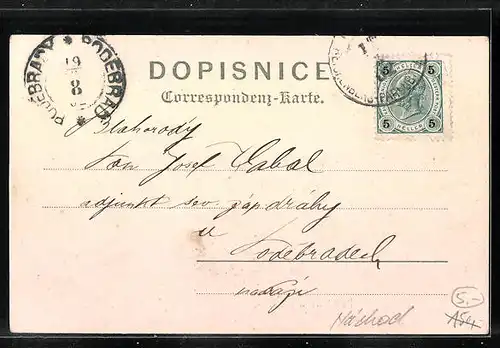 PODĚBRADY * PODĚBRAD
19
8
DOPISNICE
Correspondenz-Karte.
5 5
5 5
HELLER
Blahorody
Pan Josef Cabal
adjunkt sev. záp dráhy
v
Poděbradech
nádraží
Náchod
5.-